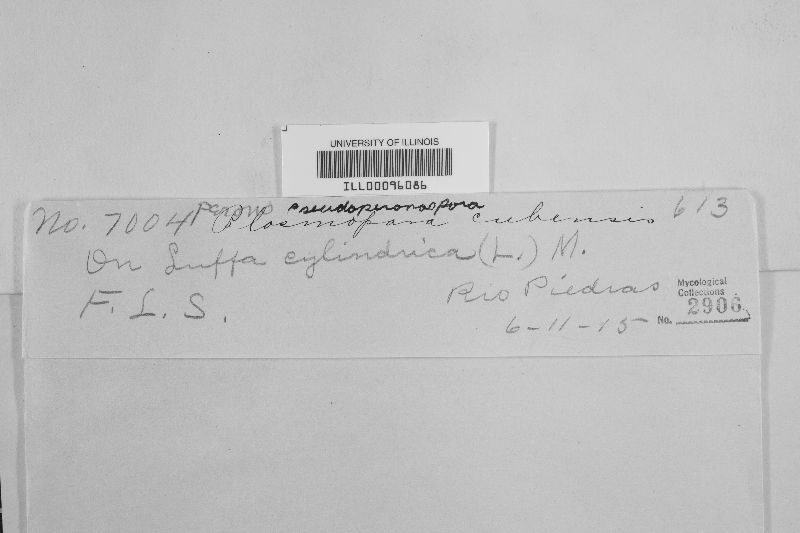 UNIVERSITY OF ILLINOIS
ILL00096086
perono Pseudoperonospora
No. 7004 Plasmopara cubensis 613
On Luffa cylindrica (L.) M.
F. L. S. Rio Piedras
6-11-15
Mycological
Collections
No. 2906